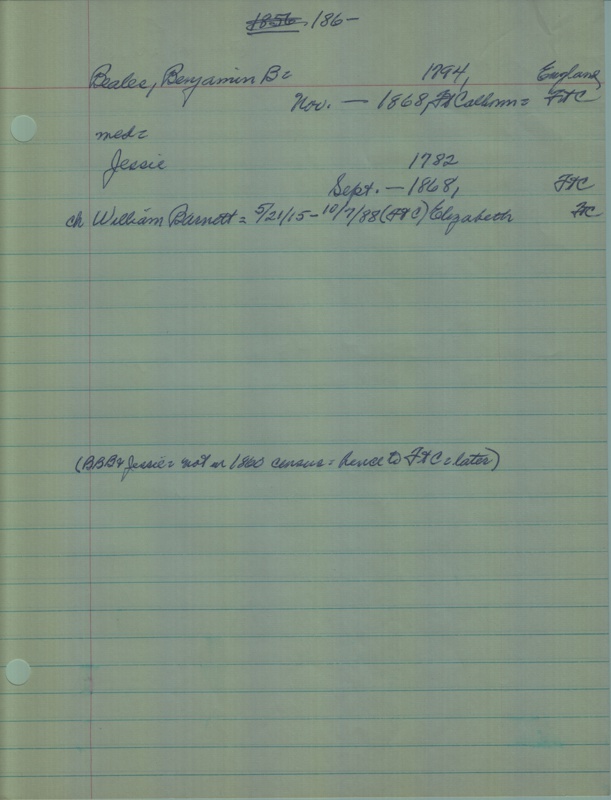 1856, 186-
Beales, Benjamin B= 1794, England
Nov. — 1868, Ft Calhoun= FtC
med=
Jessie 1782
Sept. — 1868, FtC
ch William Barnett = 5/21/15 - 10/7/88 (FtC) Elizabeth FtC
(BBB & Jessie = not in 1860 census = hence to FtC = later)